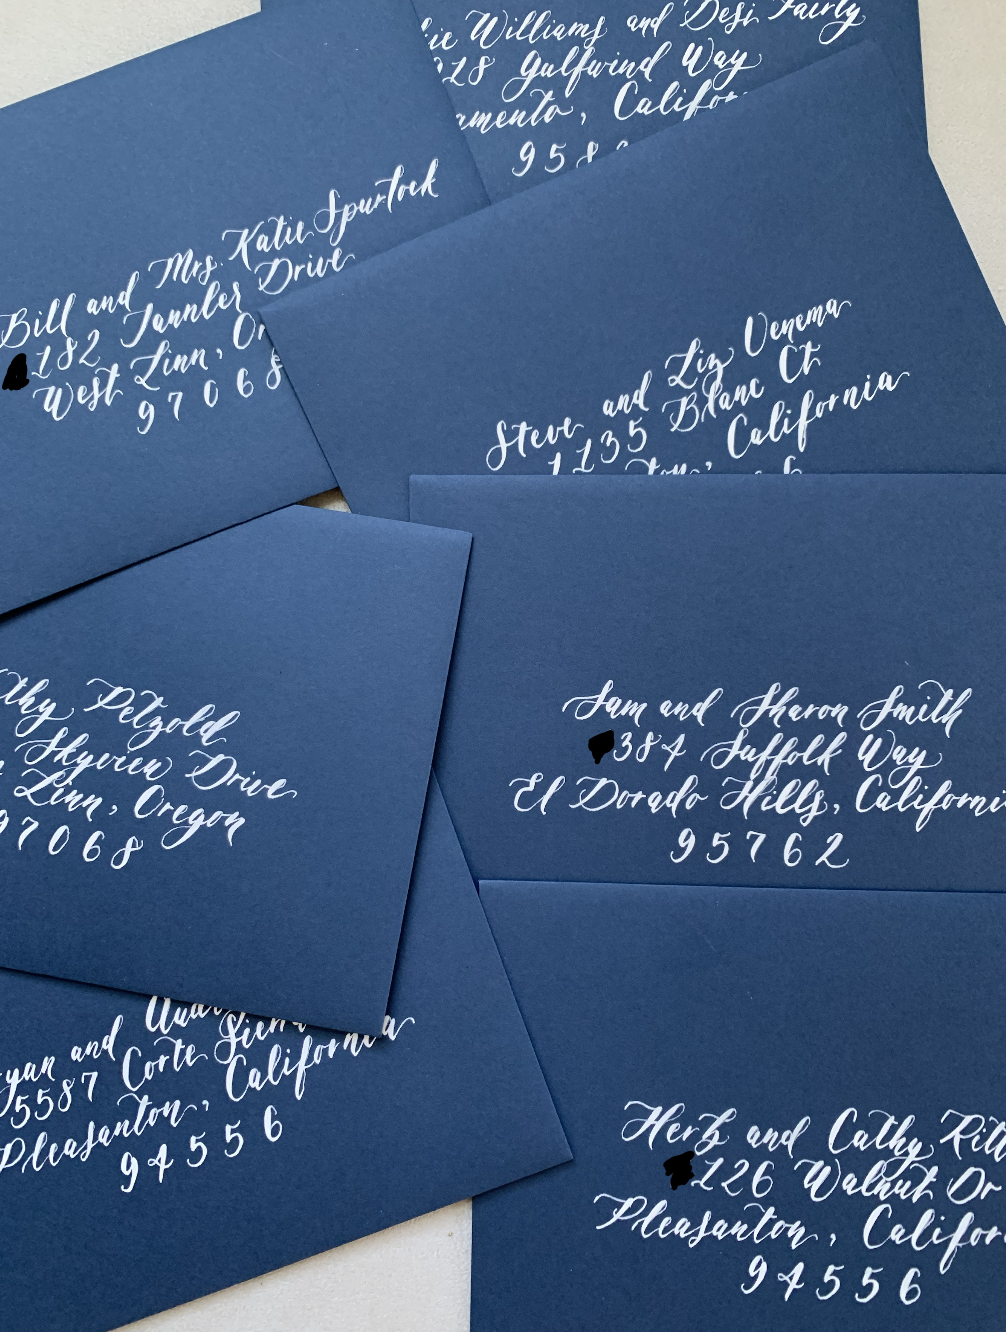 Williams and Desi Fairly
928 Gulfwind Way
amento, Califor
958
Bill and Mrs. Katie Spurlock
182 Tannler Drive
West Linn, Or
97068
Steve and Liz Venema
1135 Blanc Ct
ton, California
6
thy Petzold
Skyview Drive
Linn, Oregon
97068
Sam and Sharon Smith
384 Suffolk Way
El Dorado Hills, Californi
95762
yan and
5587 Corte Sierra
Pleasanton, California
94556
Herb and Cathy Ritt
126 Walnut Dr
Pleasanton, Califor
94556